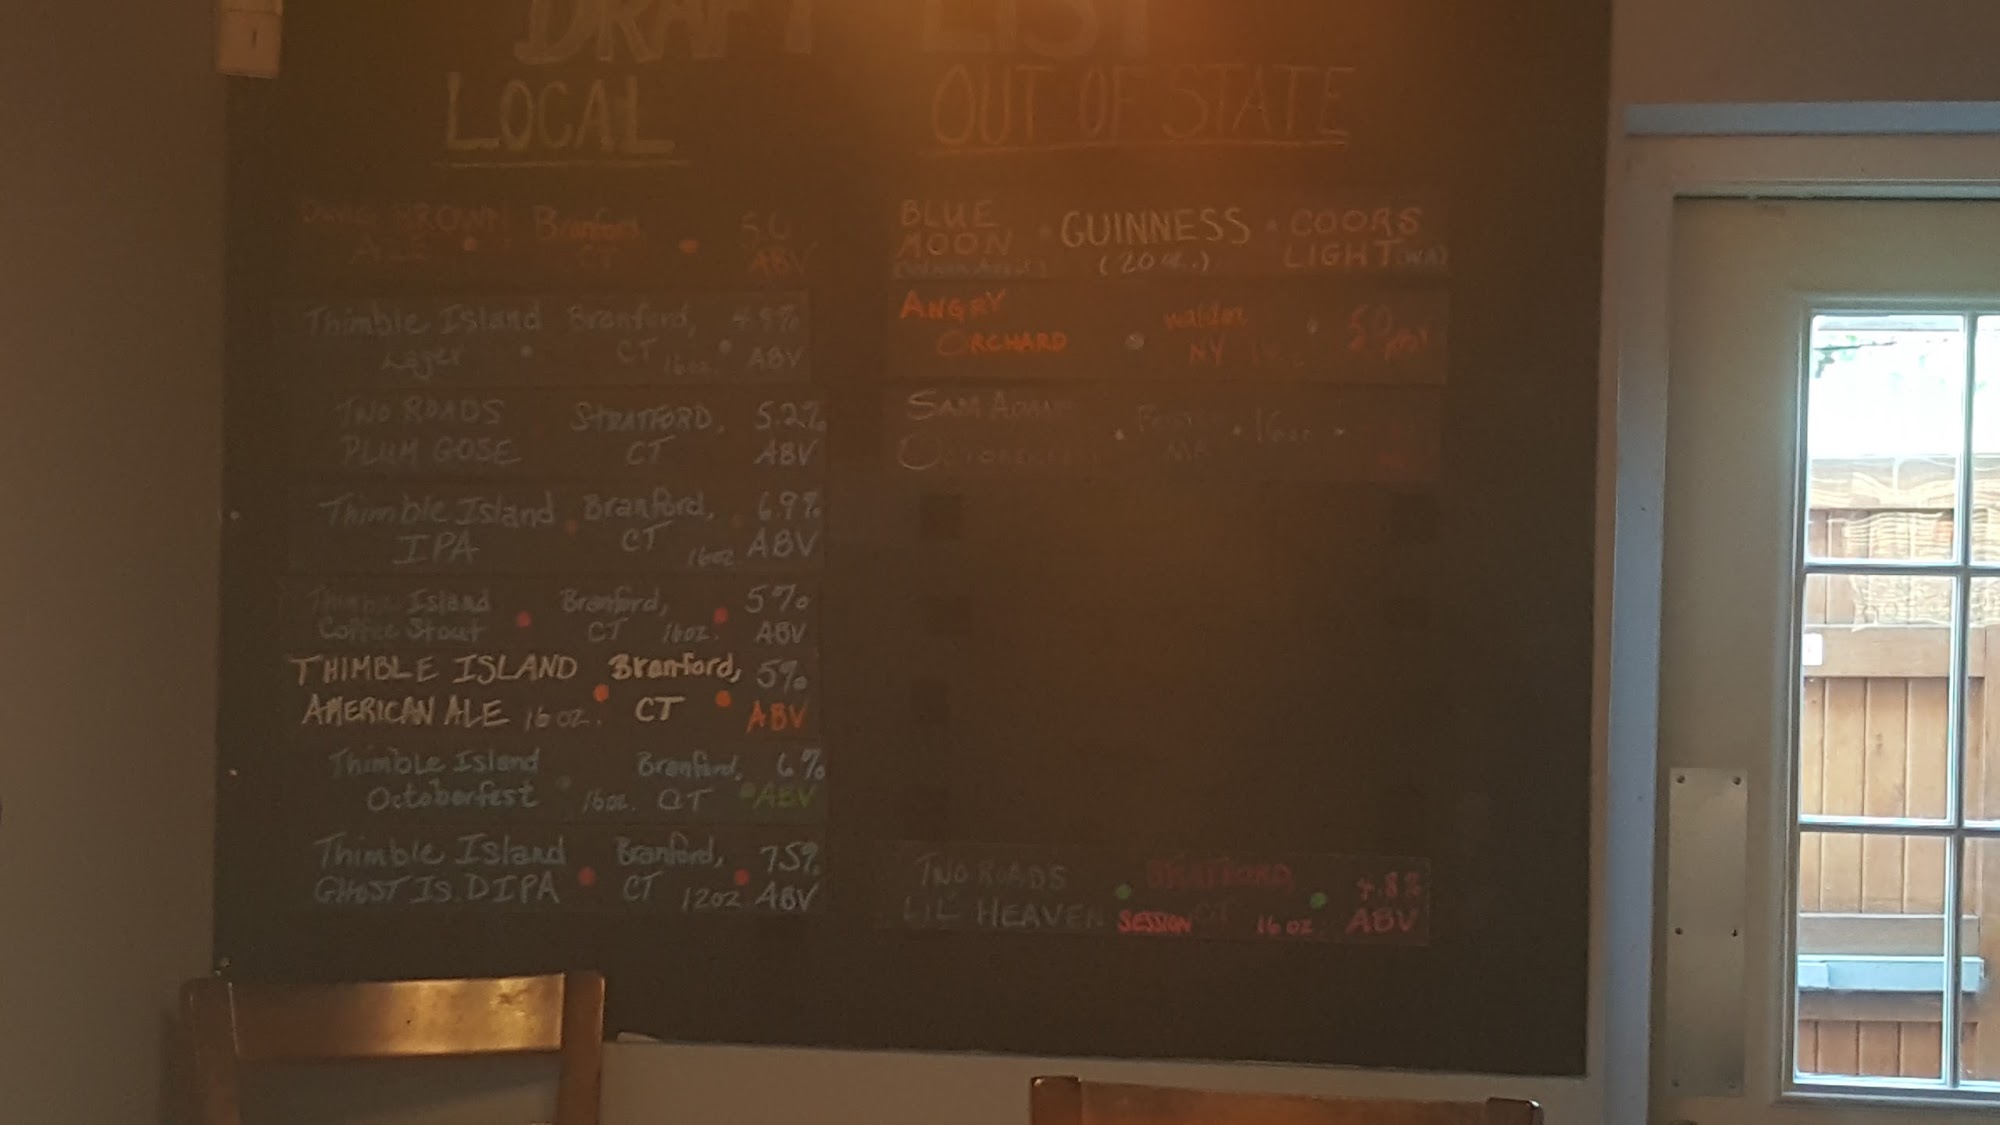 DRAFT LIST
LOCAL
BROWN Branford, 5.6
ALE CT ABV
Thimble Island Branford, 4.8%
Lager CT 16oz. ABV
TWO ROADS STRATFORD, 5.2%
PLUM GOSE CT ABV
Thimble Island Branford, 6.9%
IPA CT 16oz ABV
Thimble Island Branford, 5%
Coffee Stout CT 16oz. ABV
THIMBLE ISLAND Branford, 5%
AMERICAN ALE 16oz. CT ABV
Thimble Island Branford, 6%
Octoberfest 16oz. CT ABV
Thimble Island Branford, 7.5%
GHOST IS. DIPA CT 12oz. ABV
OUT OF STATE
BLUE GUINNESS COORS
MOON (20oz.) LIGHT
ANGRY Walden
ORCHARD NY
SAM ADAMS 16oz
TWO ROADS STRATFORD, 4.8%
LIL' HEAVEN SESSION CT 16oz. ABV